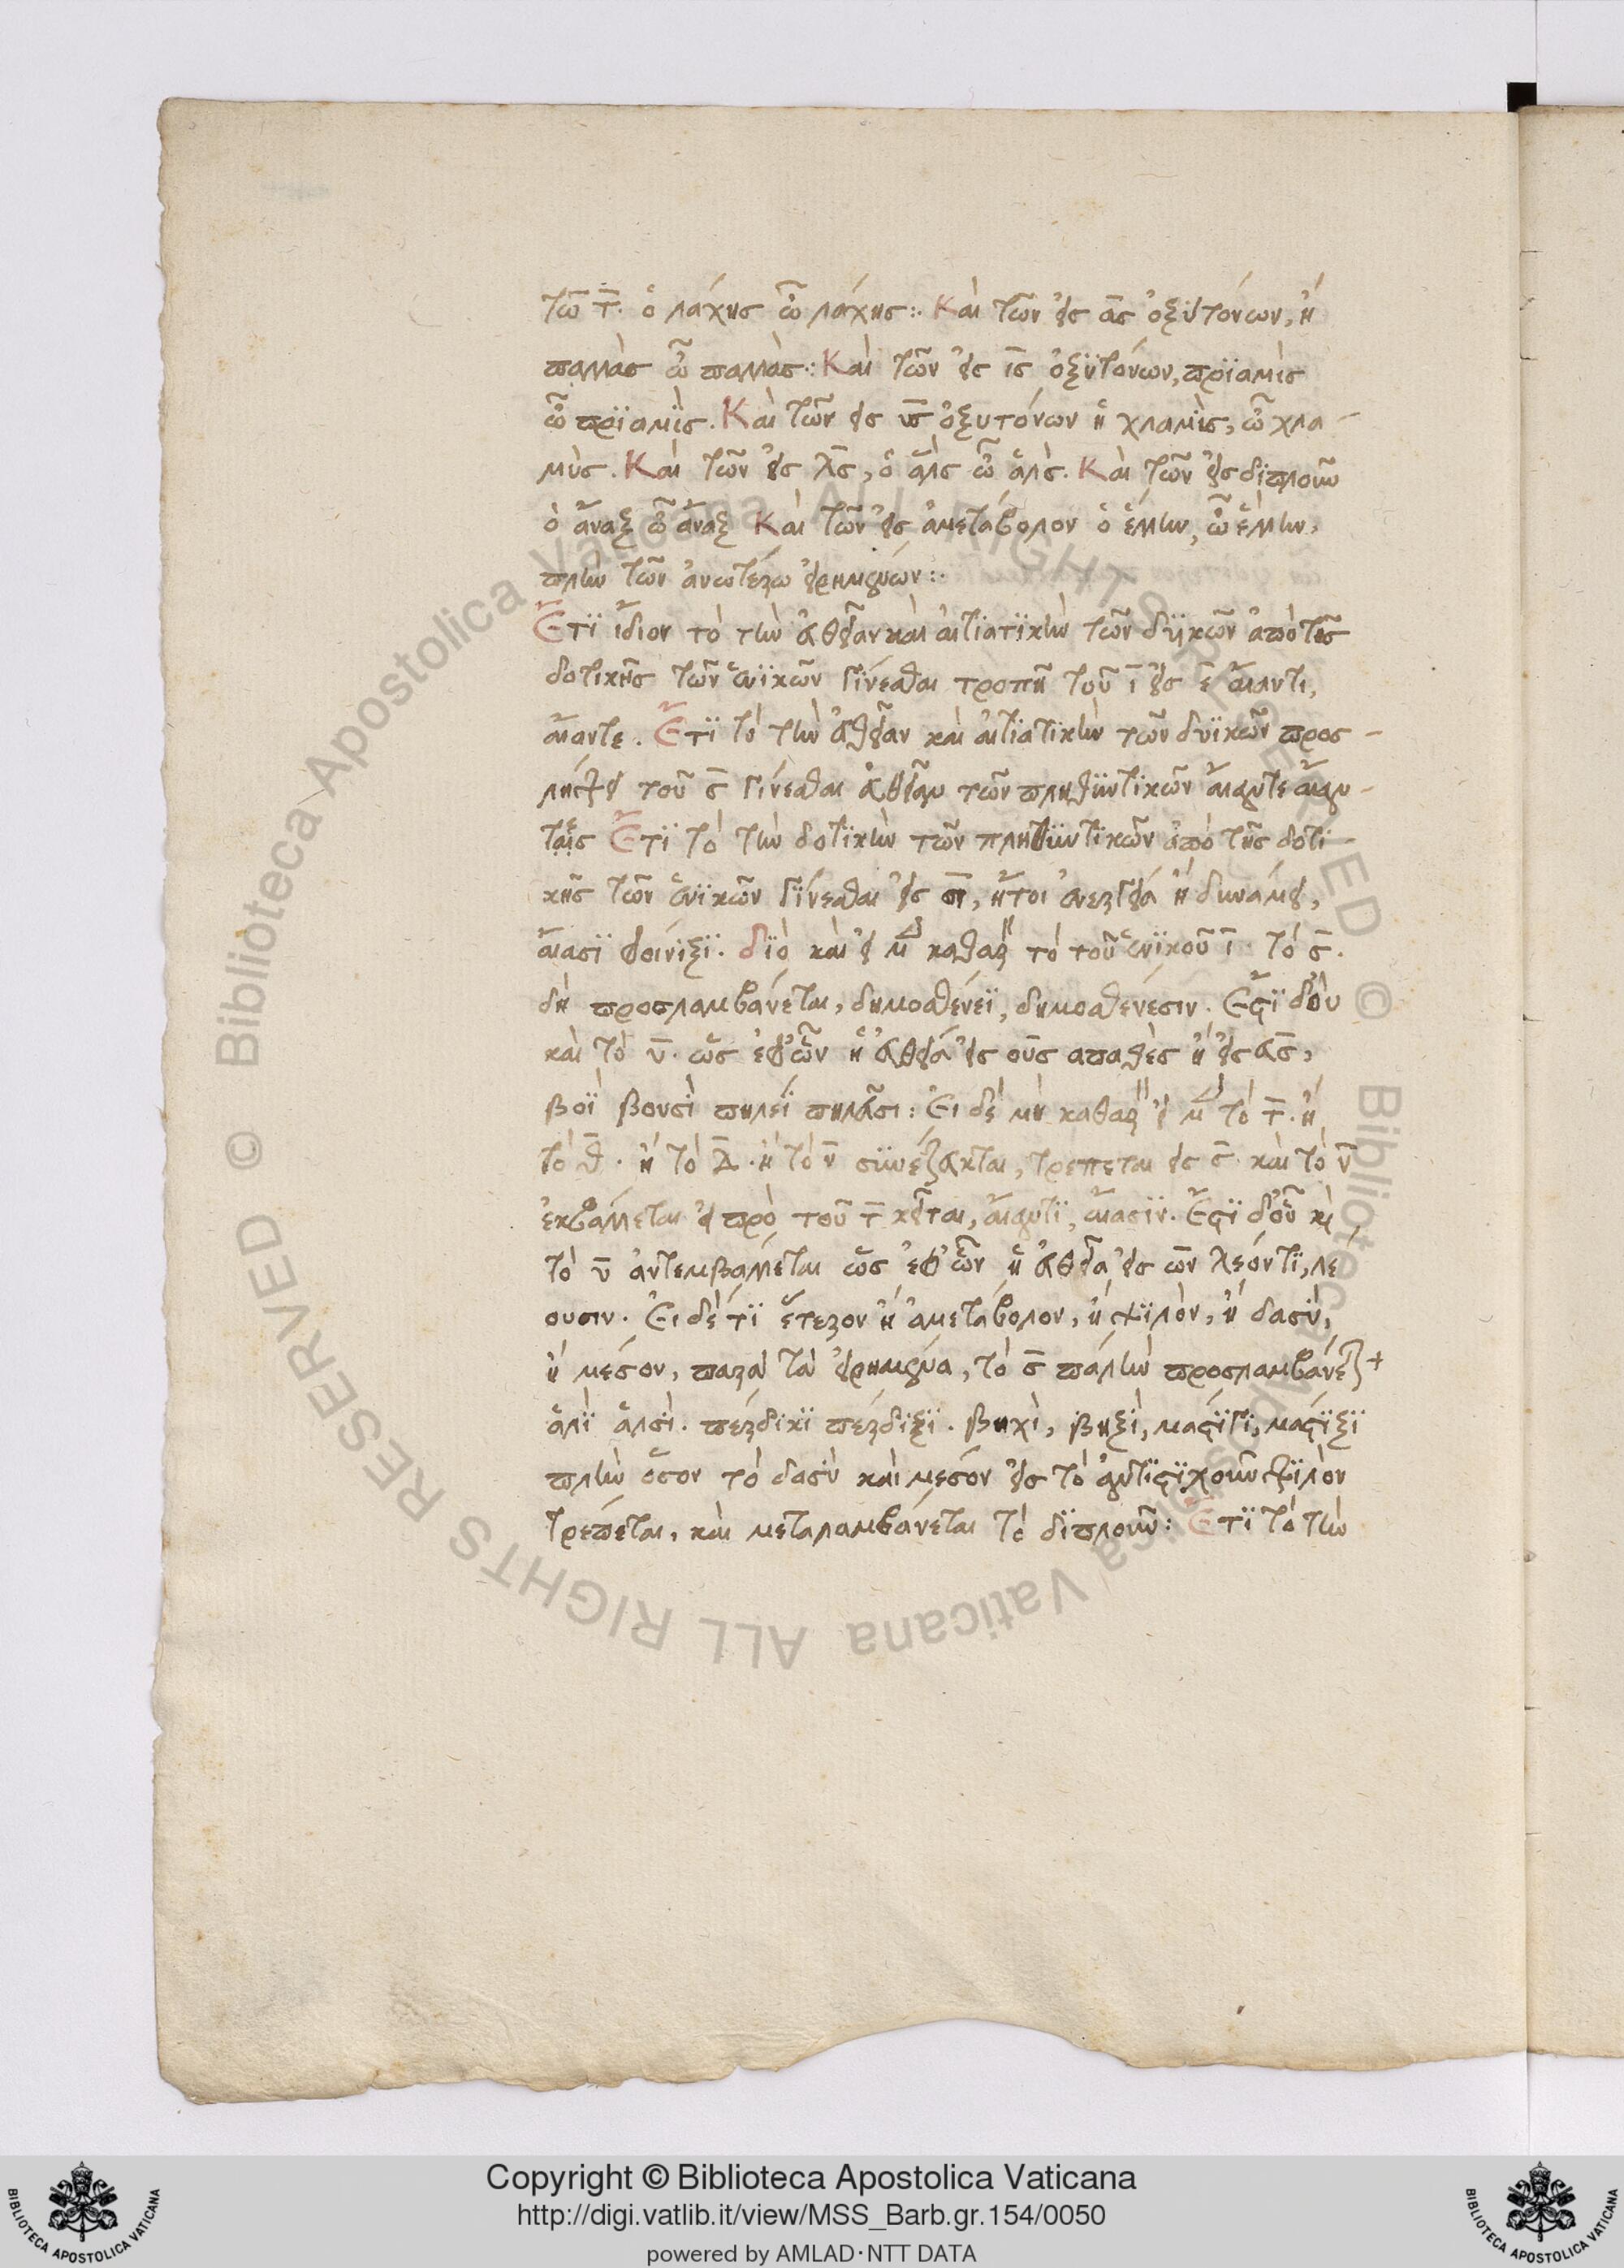 τῶ τ̄. ὁ λάχης ὦ λάχης: Καὶ τῶν εἰς ᾱς ὀξυτόνων, ἡ
παλλὰς ὦ παλλὰς: Καὶ τῶν εἰς ῑς ὀξϋτόνων, πρϊαμὶς
ὦ πρϊαμῒς. Καὶ τῶν εἰς ῡς ὀξυτόνων ἡ χλαμὺς, ὦ χλα-
μὺς. Καὶ τῶν εἰς λ̄ς, ὁ ἅλς ὦ ἅλς. Καὶ τῶν εἰς διπλοῦν
ὁ ἄναξ ὦ ἄναξ Καὶ τῶν εἰς ἀμετάβολον ὁ ἕλλην, ὦ ἕλλην,
πλὴν τῶν ἀνωτέρω εἰρημένων:
Ἔτϊ ἴδιον τὸ τὴν εὐθεῖαν καὶ αἰτιατϊκὴν τῶν δϋϊκῶν ἀπὸ τῆς
δοτικῆς τῶν ἑνϊκῶν γίνεσθαι τροπῆ τοῦ ῑ εἰς ε̄ αἴαντι,
αἴαντε. Ἔτϊ τὸ τὴν εὐθεῖαν καὶ αἰτιατικὴν τῶν δυϊκῶν προσ-
λήψει τοῦ ς̄ γίνεσθαι εὐθεῖαν τῶν πληθϋντικῶν αἴαντε αἴαν-
τες Ἔτϊ τὸ τὴν δοτϊκὴν τῶν πληθϋντικῶν ἀπὸ τῆς δοτι-
κῆς τῶν ἑνϊκῶν γίνεσθαι εἰς σῑ, ἤτοι ἐνεργεία ἢ δυνάμει,
αἴασϊ φοίνιξϊ. δϊὸ καὶ εἰ μὲν καθαρεύει τὸ τοῦ ἑνϊκοῦ ῑ. τὸ ς̄.
δὴ προσλαμβάνεται, δημοσθένεϊ, δημοσθένεσιν. Ἔστϊ δ' οὗ
καὶ τὸ ῡ. ὡς ἐφ' ὧν ἡ εὐθεῖα εἰς ους ἀπαθὲς ἢ εἰς ευς,
βοῒ βουσὶ πηλέϊ πηλεῦσι: Εἰ δὲ μὴ καθαρεύει εἰ μὲν τὸ τ̄. ἢ
τὸ θ̄. ἢ τὸ δ̄. ἢ τὸ ν̄ συνέζευκται, τρέπεται εἰς ς̄ καὶ τὸ ν̄
ἐκβάλλεται εἰ πρὸ τοῦ τ̄ κεῖται, αἴαντϊ, αἴασϊν. Ἔστϊ δ' οὗ καὶ
τὸ ῡ ἀντεμβάλλεται ὡς ἐφ' ὧν ἡ εὐθεῖα εἰς ων λέοντϊ, λέ
ουσιν. Εἰ δέ τϊ ἕτερον ἢ ἀμετάβολον, ἢ ψϊλὸν, ἢ δασὺ,
ἢ μέσον, παρὰ τὰ εἰρημένα, τὸ ς̄ πάλϊν προσλαμβάνεται +
ἁλῒ ἁλσὶ. πέρδικϊ πέρδιξϊ. βηχὶ, βηξὶ, μάστϊγι, μάστϊξϊ
πλὴν ὅσον τὸ δασὺ καὶ μέσον εἰς τὸ ἀντϊστϊχοῦν ψϊλὸν
τρέπεται, καὶ μεταλαμβάνεται τὸ δϊπλοῦν: Ἔτϊ τὸ τὴν
Copyright © Biblioteca Apostolica Vaticana
http://digi.vatlib.it/view/MSS_Barb.gr.154/0050
powered by AMLAD·NTT DATA